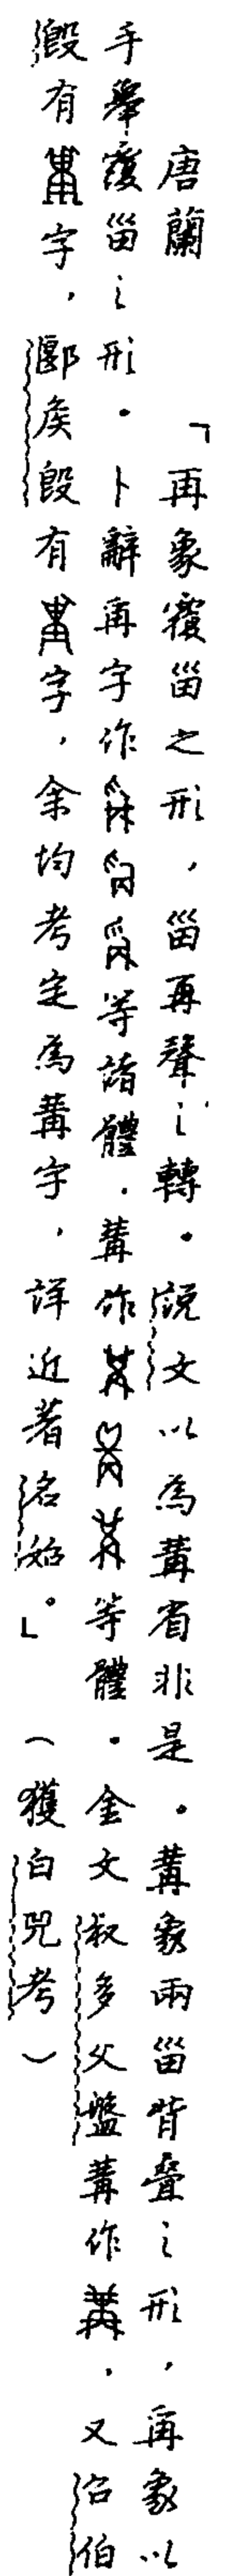 唐蘭　「再象覆甾之形，甾再聲之轉。說文以為冓省非是。冓象兩甾背疊之形，爯象以
手舉覆甾之形。卜辭爯字作等諸體。冓作等體。金文叔多父盤冓作，又召伯
𣪘有字，郾侯𣪘有字，余均考定為冓字，詳近著名始。」（獲白兕考）